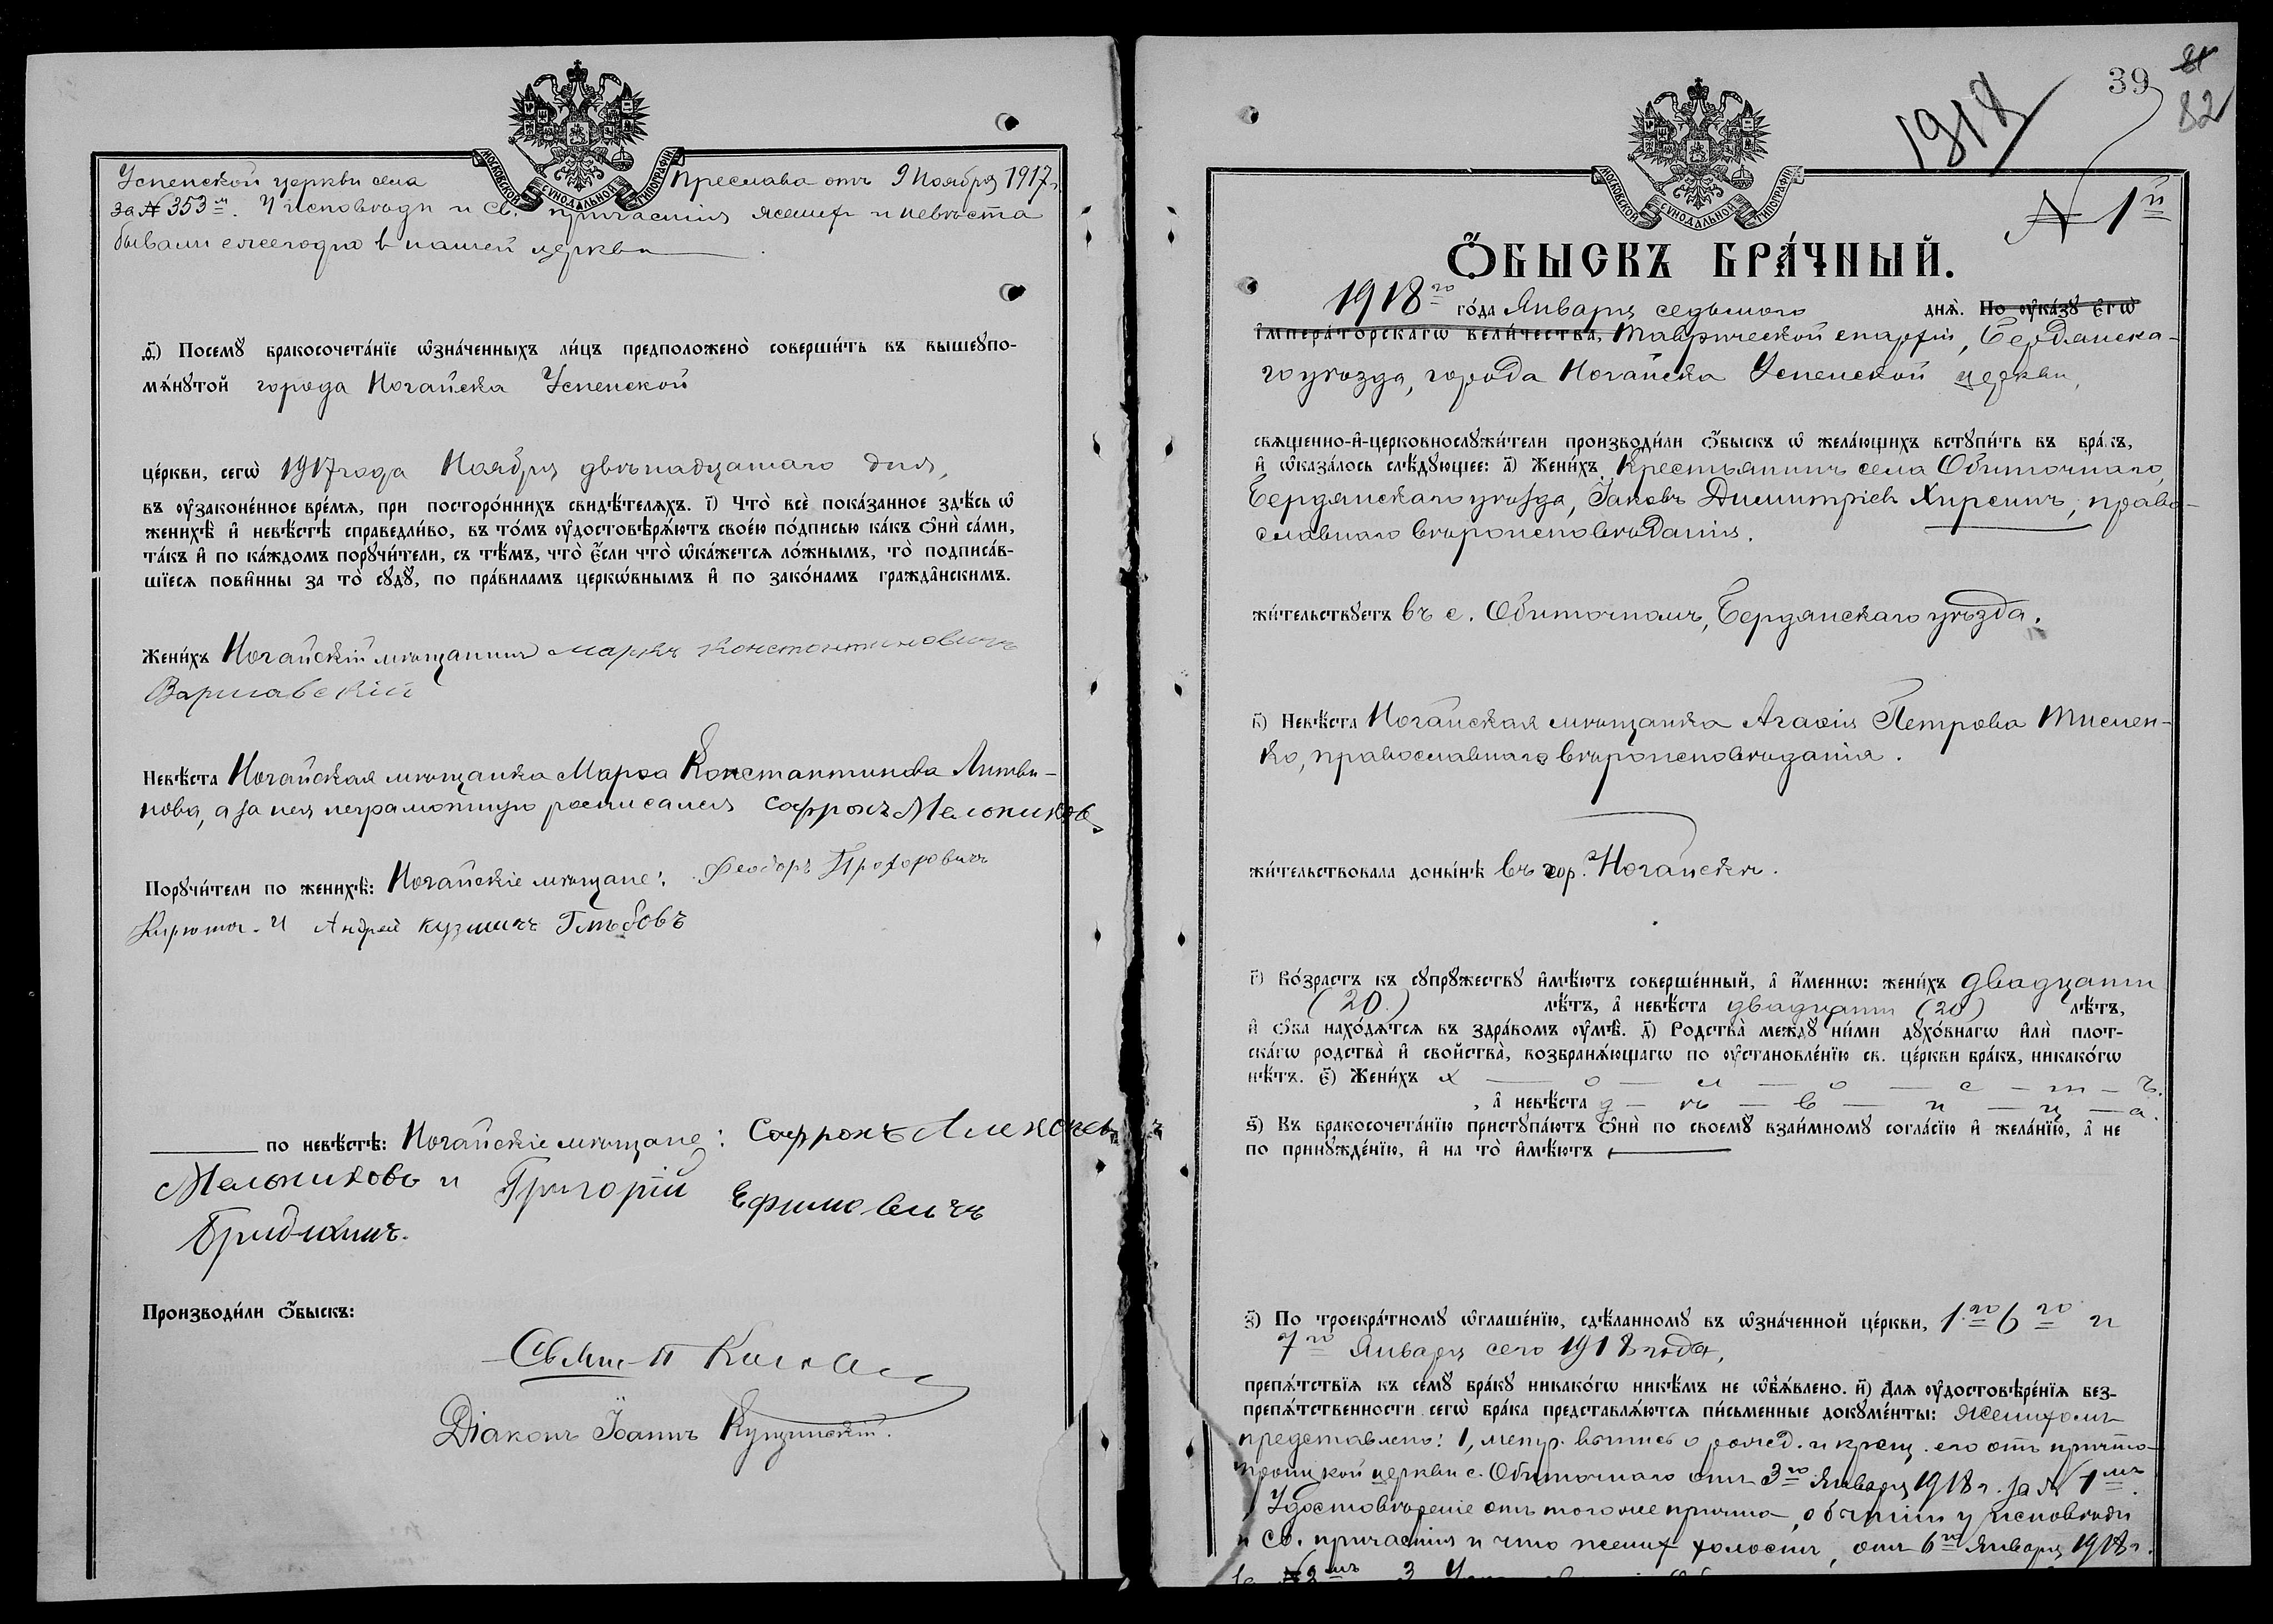 Успенской церкви села Преслава отъ 9 Ноября 1917 г.
за № 353 м. У исповѣди и Св. причастія женихъ и невѣста
бывали ежегодно в нашей церкви
МОСКОВСКОЙ СѴНОДАЛЬНОЙ ТИПОГРАФІИ
Ѳ҃) Посемꙋ̀ бракосочета́нїе ѡ҆зна́ченныхъ ли́цъ предположено̀ соверши́ть въ вышеꙋпо-
мѧ́нꙋтой города Ногайска Успенской
це́ркви, сегѡ̀ 1917 года Ноября двѣнадцатаго дня,
въ ᲂу҆зако́ненное вре́мѧ, при посторо́ннихъ свидѣ́телѧхъ. і҃) Что̀ всѐ пока́занное здѣ́сь ѡ҆
женихѣ̀ и҆ невѣ́стѣ справедли́во, въ то́мъ ᲂу҆достовѣрѧ́ютъ свое́ю по́дписью ка́къ ѻ҆нѝ са́ми,
та́къ и҆ по ка́ждомъ порꙋчи́тели, съ тѣ́мъ, что̀ є҆́сли что̀ ѡ҆ка́жетсѧ ло́жнымъ, то̀ подписа́в-
шїесѧ пови́нны за то̀ сꙋдꙋ̀, по пра́виламъ церкѡ́внымъ и҆ по зако́намъ гражда̂нскимъ.
Жени́хъ Ногайскій мѣщанинъ Маркъ Константиновичъ
Варшавскій
Невѣ́ста Ногайская мѣщанка Марѳа Константинова Литви-
нова, а за нея неграмотную росписался Софронъ Мельниковъ
Порꙋчи́тели по женихѣ̀: Ногайскіе мѣщане: Феодоръ Прохоровичъ
И Андрей Кузмичъ Глѣбовъ
по невѣ́стѣ: Ногайскіе мѣщане: Софронъ
Мельниковъ и Григорій Ефимовичъ
Производи́ли ѻ҆́быскъ:
Діаконъ Іоаннъ
39
81
82
1918
№ 1й
МОСКОВСКОЙ СѴНОДАЛЬНОЙ ТИПОГРАФІИ
Ѻ҆́БЫСКЪ БРА́ЧНЫЙ.
1918го го́да Января седьмого днѧ̀. По ᲂу҆ка́зꙋ Є҆гѡ̀
и҆мпера́торскагѡ вели́чества, Таврической епархіи, Бердянска-
го уѣзда, города Ногайска Успенской церкви,
свѧщенно-и҆-церковнослꙋжи́тели производи́ли ѻ҆́быскъ ѡ҆ жела́ющихъ встꙋпи́ть въ бра́къ,
и҆ ѡ҆каза́лось слѣ́дꙋющее: а҃) Жени́хъ Крестьянинъ села Обиточнаго,
Бердянскаго уѣзда, Іаковъ Димитріевъ Хиренъ, право-
славнаго вѣроисповѣданія.
жи́тельствꙋетъ въ с. Обиточномъ, Бердянскаго уѣзда.
в҃) Невѣ́ста Ногайская мѣщанка Агаѳія Петрова Тисмен-
ко, православнаго вѣроисповѣданія.
жи́тельствовала доны́нѣ въ гор. Ногайскѣ.
г҃) Во́зрастъ къ сꙋпрꙋ́жествꙋ и҆мѣ́ютъ соверше́нный, а҆ и҆́меннѡ: жени́хъ двадцати
(20) лѣ́тъ, а҆ невѣ́ста двадцати (20) лѣ́тъ,
и҆ ѻ҆́ба нахо́дѧтсѧ въ здра́вомъ ᲂу҆мѣ̀. д҃) Родства̀ междꙋ̀ ни́ми дꙋхо́внагѡ и҆лѝ плот-
ска́гѡ родства̀ и҆ свойства̀, возбранѧ́ющагѡ по ᲂу҆становле́нїю св. це́ркви бра́къ, никако́гѡ
нѣ́тъ. є҃) Жени́хъ х — о — л — о — с — т — ъ.
, а҆ невѣ́ста д — ѣ — в — и — ц — а.
ѕ҃) Къ бракосочета́нїю пристꙋпа́ютъ ѻ҆нѝ по своемꙋ̀ взаи́мномꙋ согла́сїю и҆ жела́нїю, а҆ не
по принꙋжде́нїю, и҆ на то̀ и҆мѣ́ютъ
з҃) По троекра́тномꙋ ѡ҆глаше́нїю, сдѣ́ланномꙋ въ ѡ҆зна́ченной це́ркви, 1го 6го и
7го Января сего 1918 года,
препѧ́тствїѧ къ семꙋ̀ бра́кꙋ никако́гѡ никѣ́мъ не ѡ҆б̾ѧ́влено. и҃) Длѧ ᲂу҆достовѣре́нїѧ без-
препѧ́тственности сегѡ̀ бра́ка представлѧ́ютсѧ пи́сьменные докꙋме́нты: Женихомъ
представлено: 1, метр. выпись о рожд. и крещ. его отъ причта
Троицкой церкви с. Обиточнаго отъ 3го Января 1918 г. за № 1мъ
Удостовѣреніе отъ того же причта, о бытіи у исповѣди
и Св. причастія и что жених холостъ, отъ 6го Января 1918 г.
за № 2мъ 3